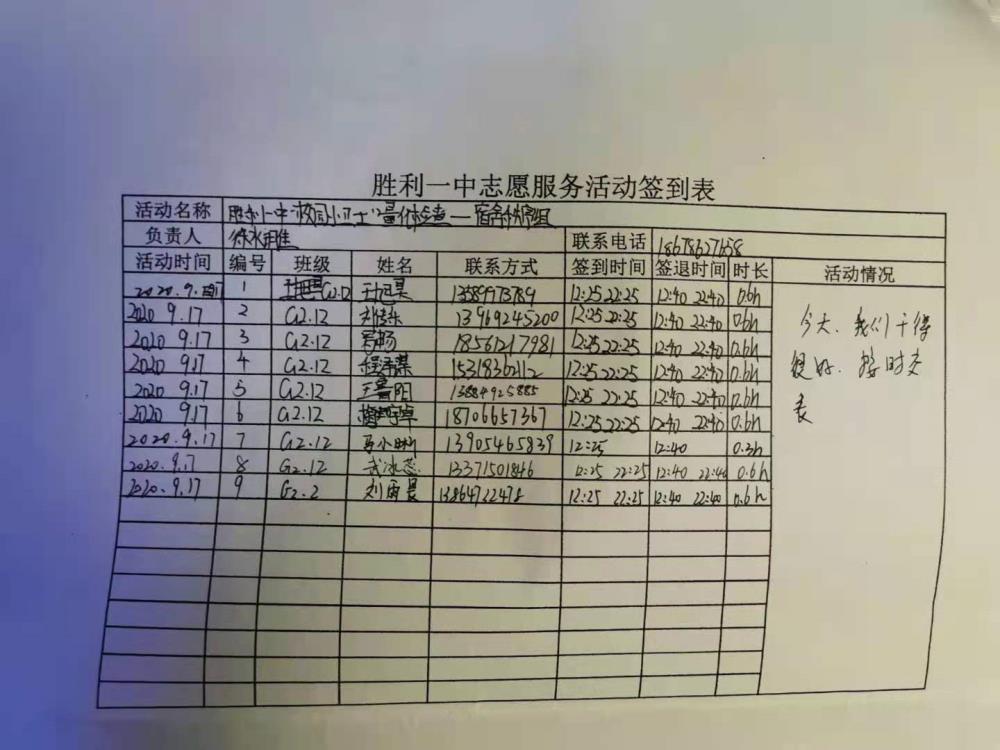 胜利一中志愿服务活动签到表
活动名称 胜利一中"校园小卫士"量化检查—宿舍秩序组
负责人 联系电话
活动时间 编号 班级 姓名 联系方式 签到时间 签退时间 时长 活动情况
2020.9. 1 13589973789 12:25 22:25 12:40 22:40 0.6h
2020 9.17 2 G2.12 13969245200 12:25 22:25 12:40 22:40 0.6h
2020 9.17 3 G2.12 18561217981 12:25 22:25 12:40 22:40 0.6h
2020 9.17 4 G2.12 15318362112 12:25 22:25 12:40 22:40 0.6h
2020 9.17 5 G2.12 13884925885 12:25 22:25 12:40 22:40 0.6h
2020 9.17 6 G2.12 18706657367 12:25 22:25 12:40 22:40 0.6h
2020.9.17 7 G2.12 13905465839 12:25 12:40 0.3h
2020.9.17 8 G2.12 武冰蕊 13371501846 12:25 22:25 12:40 22:40 0.6h
2020.9.17 9 G2.2 刘雨晨 13864722478 12:25 22:25 12:40 22:40 0.6h
今天、我们干得
很好、按时交
表